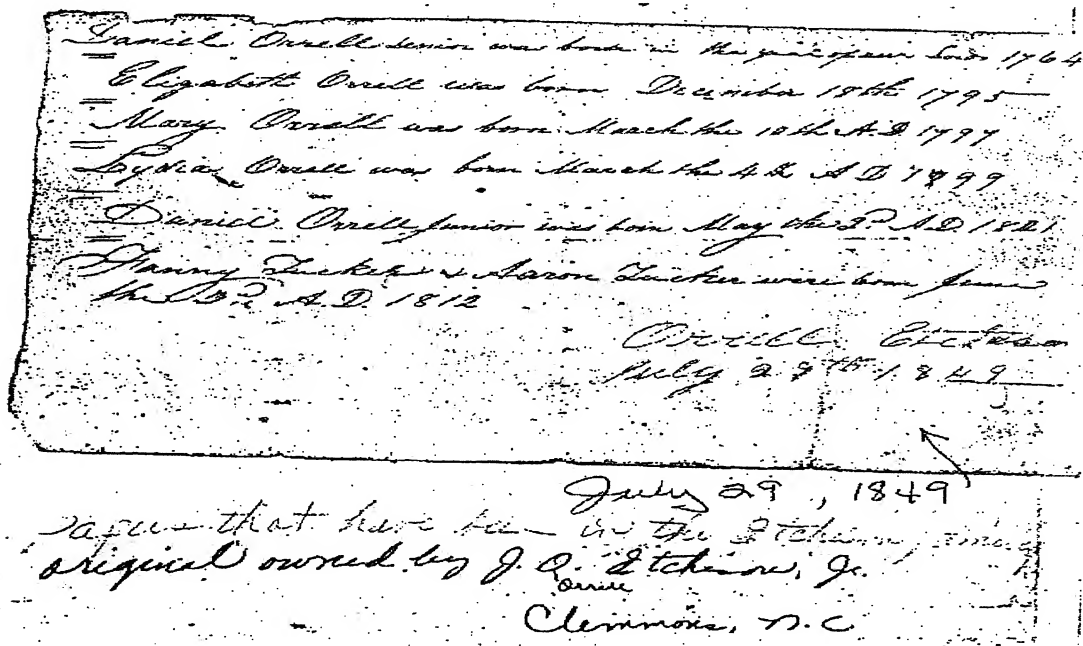 Daniel Orrell senior was born in the year of our Lord 1764
Elizabeth Orrell was born December 18th 1795
Mary Orrell was born March the 10th A.D. 1797
Lydia Orrell was born March the 4th A D 1799
Daniel Orrell Junior was born May the 3d A.D. 1801
Fanny Tucker & Aaron Tucker were born June
the 3d A.D. 1812
Orrell
July 29th 1849
July 29, 1849
that have been in the Etchison
original owned by J. O. Etchison, Jr.
Orrell
Clemmons, N.C